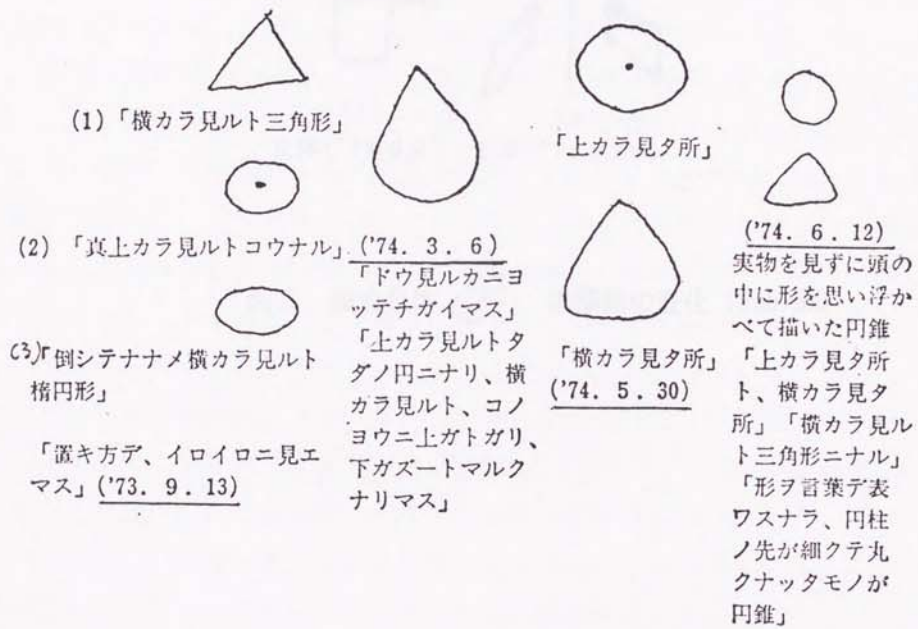 (1)「横カラ見ルト三角形」
(2)「真上カラ見ルトコウナル」
(3)「倒シテナナメ横カラ見ルト
楕円形」
「置キ方デ、イロイロニ見エ
マス」('73. 9. 13)
('74. 3. 6)
「ドウ見ルカニヨ
ッテチガイマス」
「上カラ見ルトタ
ダノ円ニナリ、横
カラ見ルト、コノ
ヨウニ上ガトガリ、
下ガズートマルク
ナリマス」
「上カラ見タ所」
「横カラ見タ所」
('74. 5. 30)
('74. 6. 12)
実物を見ずに頭の
中に形を思い浮か
べて描いた円錐
「上カラ見タ所
ト、横カラ見タ
所」「横カラ見ル
ト三角形ニナル」
「形ヲ言葉デ表
ワスナラ、円柱
ノ先が細クテ丸
クナッタモノが
円錐」